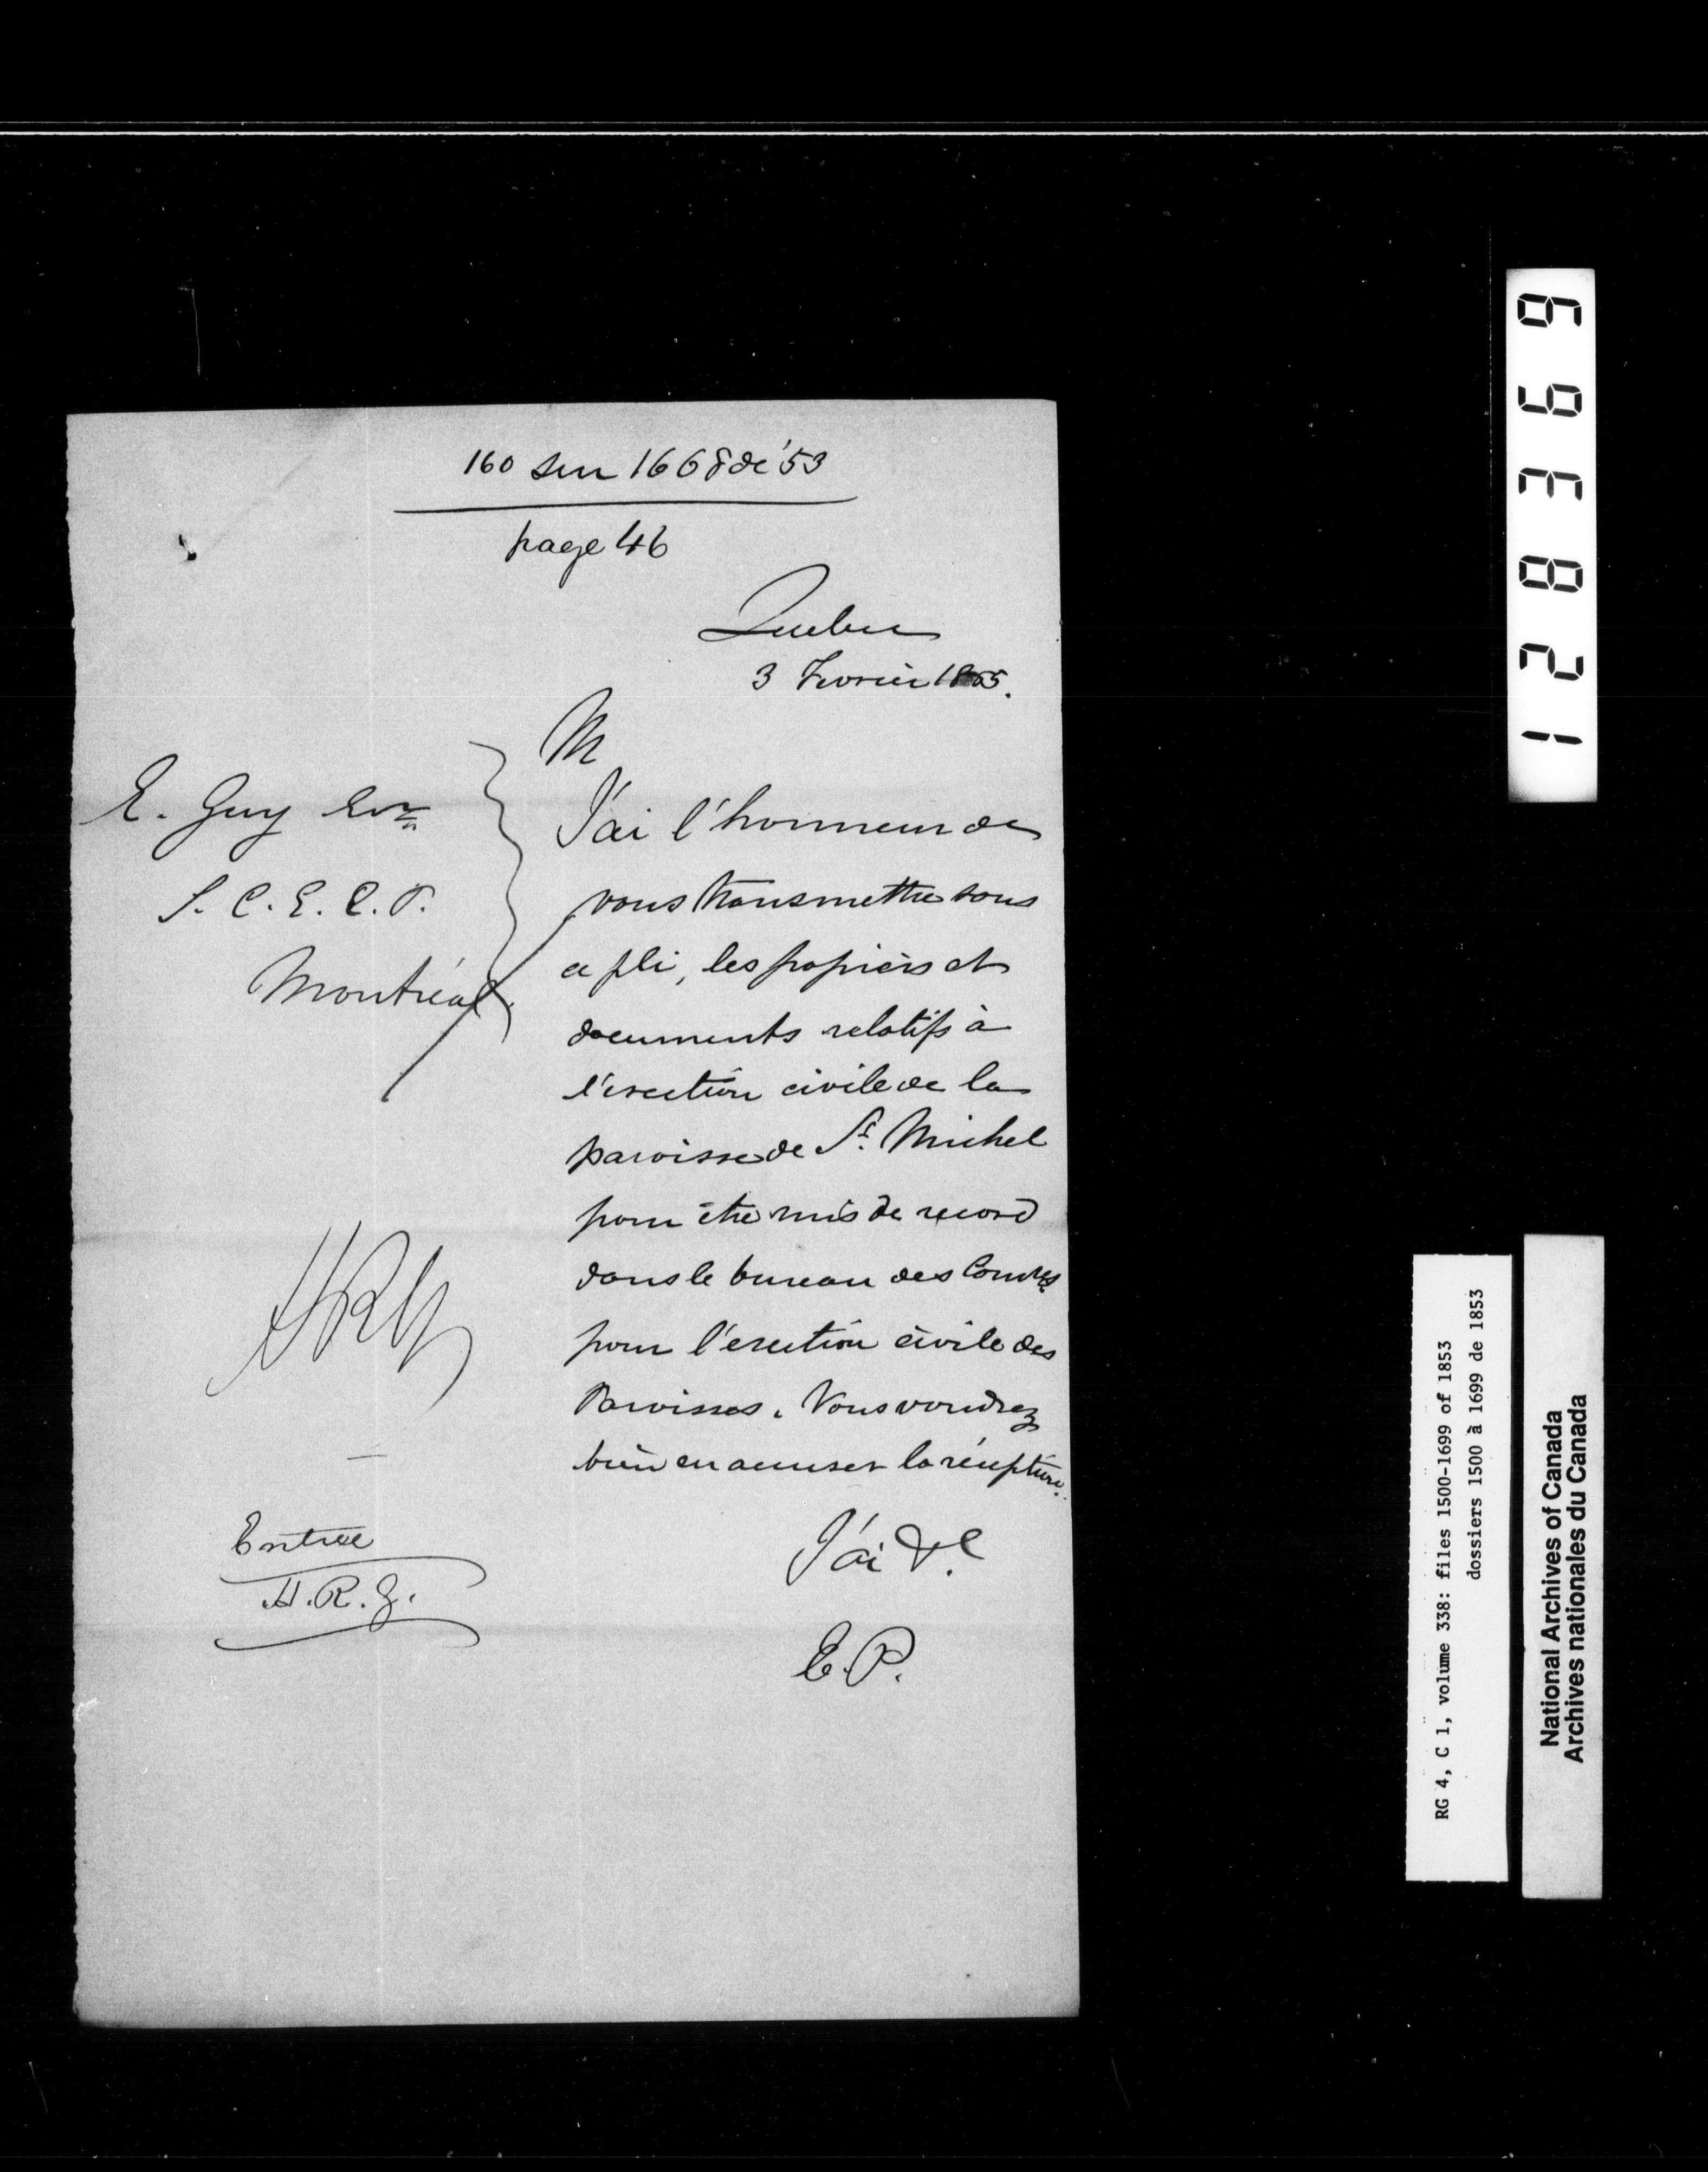 160 sur 1668 de '53
page 46
Quebec
3 Fevrier 1865.
M
E. Guy Ecr
S. C. E. C. P.
Montréal.
J'ai l'honneur de
vous transmettre sous
ce pli, les papiers et
documents relatifs à
l'erection civile de la
paroisse de St. Michel
pour être mis de record
dans le bureau des Comres
pour l'erection civile des
Paroisses. Vous voudrez
bien en accuser la réception.
J'ai &c.
E. P.
Entrée
H. R. G.
128369
RG 4, C 1, volume 338: files 1500-1699 of 1853
dossiers 1500 à 1699 de 1853
National Archives of Canada
Archives nationales du Canada